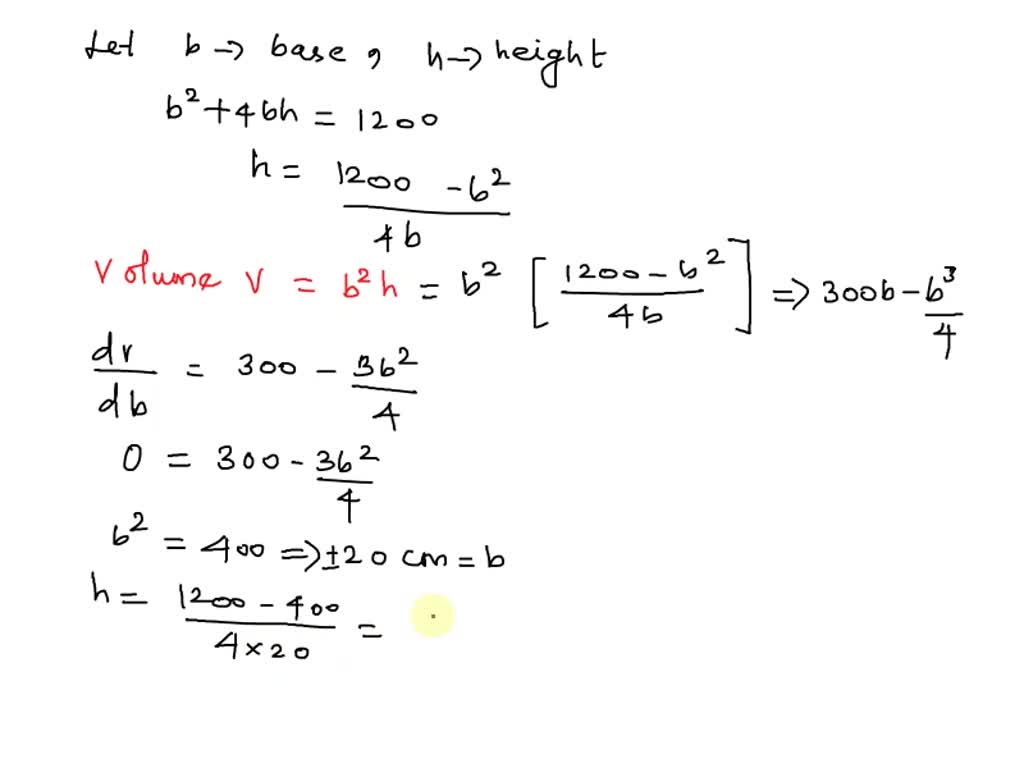 Let b → base, h → height
b² + 4bh = 1200
h = (1200 - b²)/(4b)
Volume V = b²h = b² [(1200 - b²)/(4b)] ⇒ 300b - b³/4
dv/db = 300 - 3b²/4
0 = 300 - 3b²/4
b² = 400 ⇒ ±20 cm = b
h = (1200 - 400)/(4×20) =